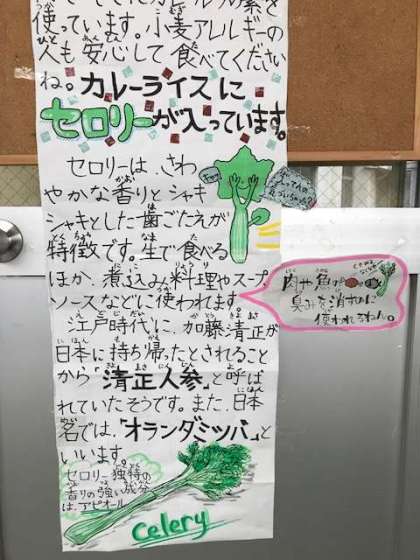 使っています。小麦アレルギーの
人も安心して食べてください
ね。カレーライスに
セロリーが入っています。
セロリーは、さわ
やかな香りとシャキ
シャキとした歯ごたえが
特徴です。生で食べる
ほか、煮込み料理やスープ、
ソースなどに使われます。
肉や魚の
臭みを消すのに
使われるわん。
江戸時代に、加藤清正が
日本に持ち帰ったとされること
から「清正人参」と呼ば
れていたそうです。また、日本
名では、「オランダミツバ」と
いいます。
セロリー独特の
香りの強い成分
は、アピオール
Celery